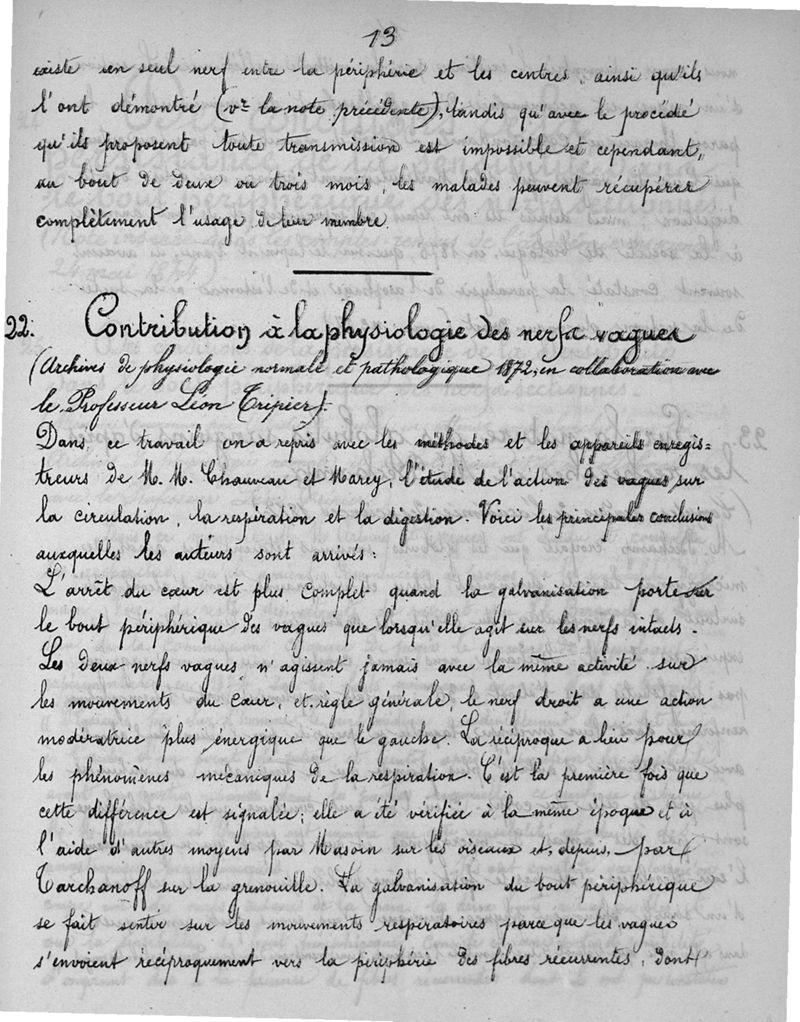 13
existe un seul nerf entre la périphérie et les centres, ainsi qu'ils
l'ont démontré (vr la note précédente), tandis qu'avec le procédé
qu'ils proposent toute transmission est impossible et cependant,
au bout de deux ou trois mois, les malades peuvent récupérer
complètement l'usage de leur membre.
22. Contribution à la physiologie des nerfs vagues
(Archives de physiologie normale et pathologique 1872, en collaboration avec
le Professeur Léon Tripier).
Dans ce travail on a repris avec les méthodes et les appareils enregis=
treurs de M. M. Chauveau et Marey, l'étude de l'action des vagues sur
la circulation, la respiration et la digestion. Voici les principales conclusions
auxquelles les auteurs sont arrivés :
L'arrêt du cœur est plus complet quand la galvanisation porte sur
le bout périphérique des vagues que lorsqu'elle agit sur les nerfs intacts.
Les deux nerfs vagues n'agissent jamais avec la même activité sur
les mouvements du cœur, et, règle générale, le nerf droit a une action
modératrice plus énergique que le gauche. La réciproque a lieu pour
les phénomènes mécaniques de la respiration. C'est la première fois que
cette différence est signalée; elle a été vérifiée à la même époque et à
l'aide d'autres moyens par Masoin sur les oiseaux et, depuis, par
Tarchanoff sur la grenouille. La galvanisation du bout périphérique
se fait sentir sur les mouvements respiratoires parce que les vagues
s'envoient réciproquement vers la périphérie des fibres récurrentes, dont